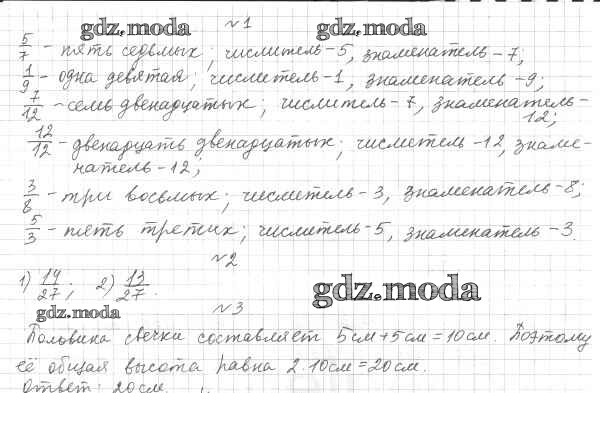 gdz.moda №1 gdz.moda
5/7 - пять седьмых; числитель-5, знаменатель-7;
1/9 - одна девятая; числитель-1, знаменатель-9;
7/12 - семь двенадцатых; числитель-7, знаменатель-
12;
12/12 - двенадцать двенадцатых; числитель-12, знаме-
натель-12;
3/8 - три восьмых; числитель-3, знаменатель-8;
5/3 - пять третих; числитель-5, знаменатель-3.
№2
1) 14/27; 2) 13/27.
gdz.moda
gdz.moda №3
Половина свечки составляет 5см+5см=10см. Поэтому
её общая высота равна 2·10см=20см.
Ответ: 20см.